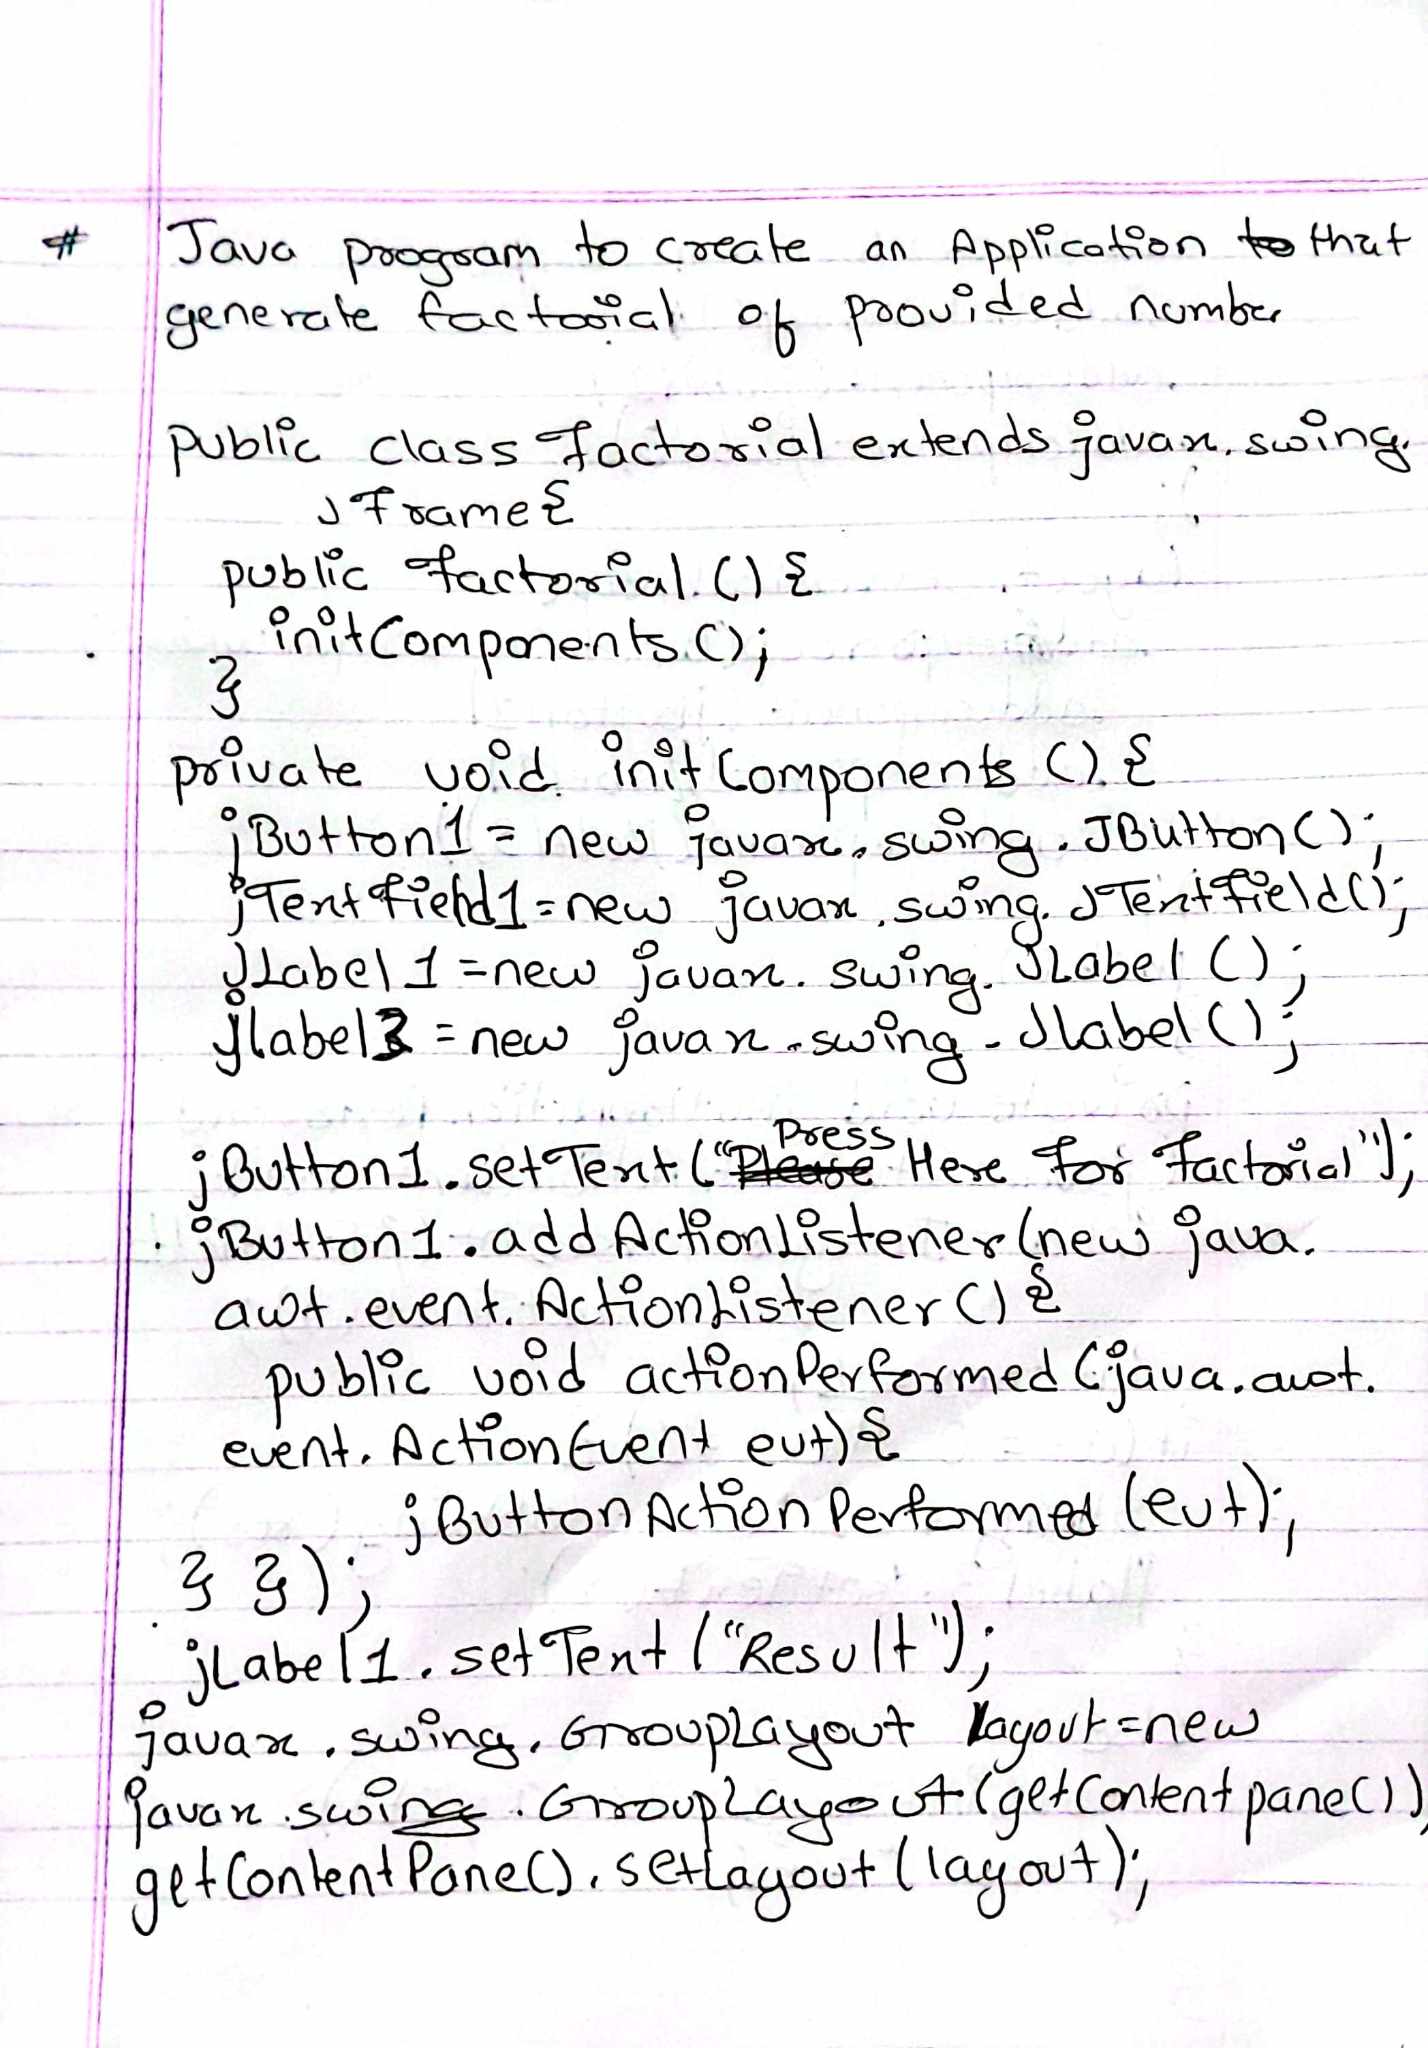 # Java program to create an Application to that
generate factorial of provided number
public class Factorial extends javax.swing.
JFrame{
public Factorial () {
initComponents();
}
private void initComponents () {
jButton1 = new javax.swing.JButton();
jTextField1 = new javax.swing.JTextField();
JLabel1 = new javax.swing.JLabel();
jlabel3 = new javax.swing.Jlabel();
jButton1.setText("Please Press Here For Factorial");
jButton1.addActionListener(new java.
awt.event.ActionListener() {
public void actionPerformed (java.awt.
event.ActionEvent evt) {
jButtonActionPerformed (evt);
} });
jLabel1.setText ("Result");
javax.swing.GroupLayout layout = new
javax.swing.GroupLayout(getContentpane())
getContentPane().setLayout(layout);